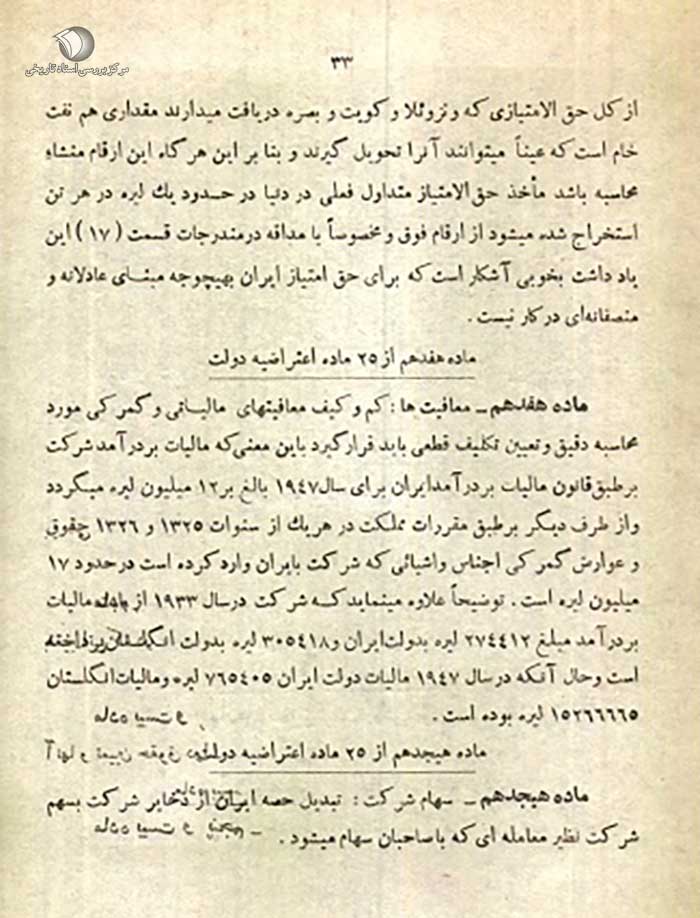 مرکز بررسی اسناد تاریخی
۳۳
از کل حق الامتیازی که ونزوئلا و کویت و بصره دریافت میدارند مقداری هم نفت
خام است که عیناً میتوانند آنرا تحویل گیرند و بنا بر این هر گاه این ارقام منشاء
محاسبه باشد مأخذ حق الامتیاز متداول فعلی در دنیا در حدود یك لیره در هر تن
استخراج شده میشود از ارقام فوق و مخصوصاً با مداقه در مندرجات قسمت (۱۷) این
یاد داشت بخوبی آشکار است که برای حق امتیاز ایران بهیچوجه مبنای عادلانه و
منصفانه‌ای در کار نیست .
ماده هفدهم از ۲۵ ماده اعتراضیه دولت
ماده هفدهم ـ معافیت ها : کم و کیف معافیتهای مالیاتی و گمر کی مورد
محاسبه دقیق و تعیین تکلیف قطعی باید قرار گیرد باین معنی که مالیات بر در آمد شرکت
بر طبق قانون مالیات بر در آمد ایران برای سال ۱۹۴۷ بالغ بر ۱۲ میلیون لیره میگردد
و از طرف دیگر بر طبق مقررات مملکت در هر یك از سنوات ۱۳۲۵ و ۱۳۲۶ حقوق
و عوارض گمر کی اجناس و اشیائی که شرکت بایران وارد کرده است در حدود ۱۷
میلیون لیره است . توضیحاً علاوه مینماید کــه شرکت در سال ۱۹۳۳ از بابت مالیات
بر در آمد مبلغ ۲۷۴۴۱۲ لیره بدولت ایران و ۳۰۵۴۱۸ لیره بدولت انگلستان پرداخته
است و حال آنکه در سال ۱۹۴۷ مالیات دولت ایران ۷۶۵۴۰۵ لیره و مالیات انگلستان
۱۵۲۶۶۶۶۵ لیره بوده است .
ماده هیجدهم از ۲۵ ماده اعتراضیه دولت
ماده هیجدهم ـ سهام شرکت : تبدیل حصه ایران از ذخایر شرکت بسهم
شرکت نظیر معامله ای که با صاحبان سهام میشود .